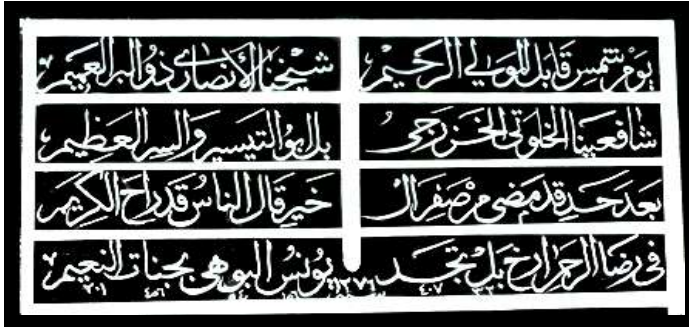 يوم شمس قابل المولى الرحيم شيخنا الأنصاري ذو البر العميم
شافعينا الخلوتي الخزرجي بل ابو التيسير والسر العظيم
بعد حد قد مضى من صفر ال خير قال الناس قد راح الكريم
في رضا الرحمن ارخ بل تجد يونس البوهي بجنات النعيم
٣٢ ٤٠٧ ١٢٧٦ ١٢٦ ٥٤ ٤٥٦ ٢٠١